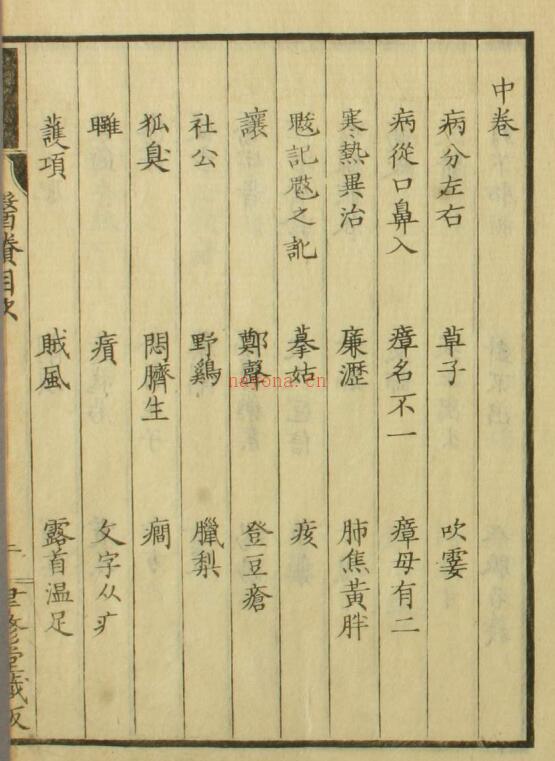 中卷
病分左右　草子　吹霎
病從口鼻入　瘴名不一　瘴母有二
寒熱異治　廉瀝　肺焦黃胖
記　之訛　摹姑　痎
讓　鄭聲　登豆瘡
社公　野鷄　臘梨
狐臭　悶臍生　癇
㿉　文字从疒
護項　賊風　露首温足
醫賸目次　聿修堂藏板
nayona.cn